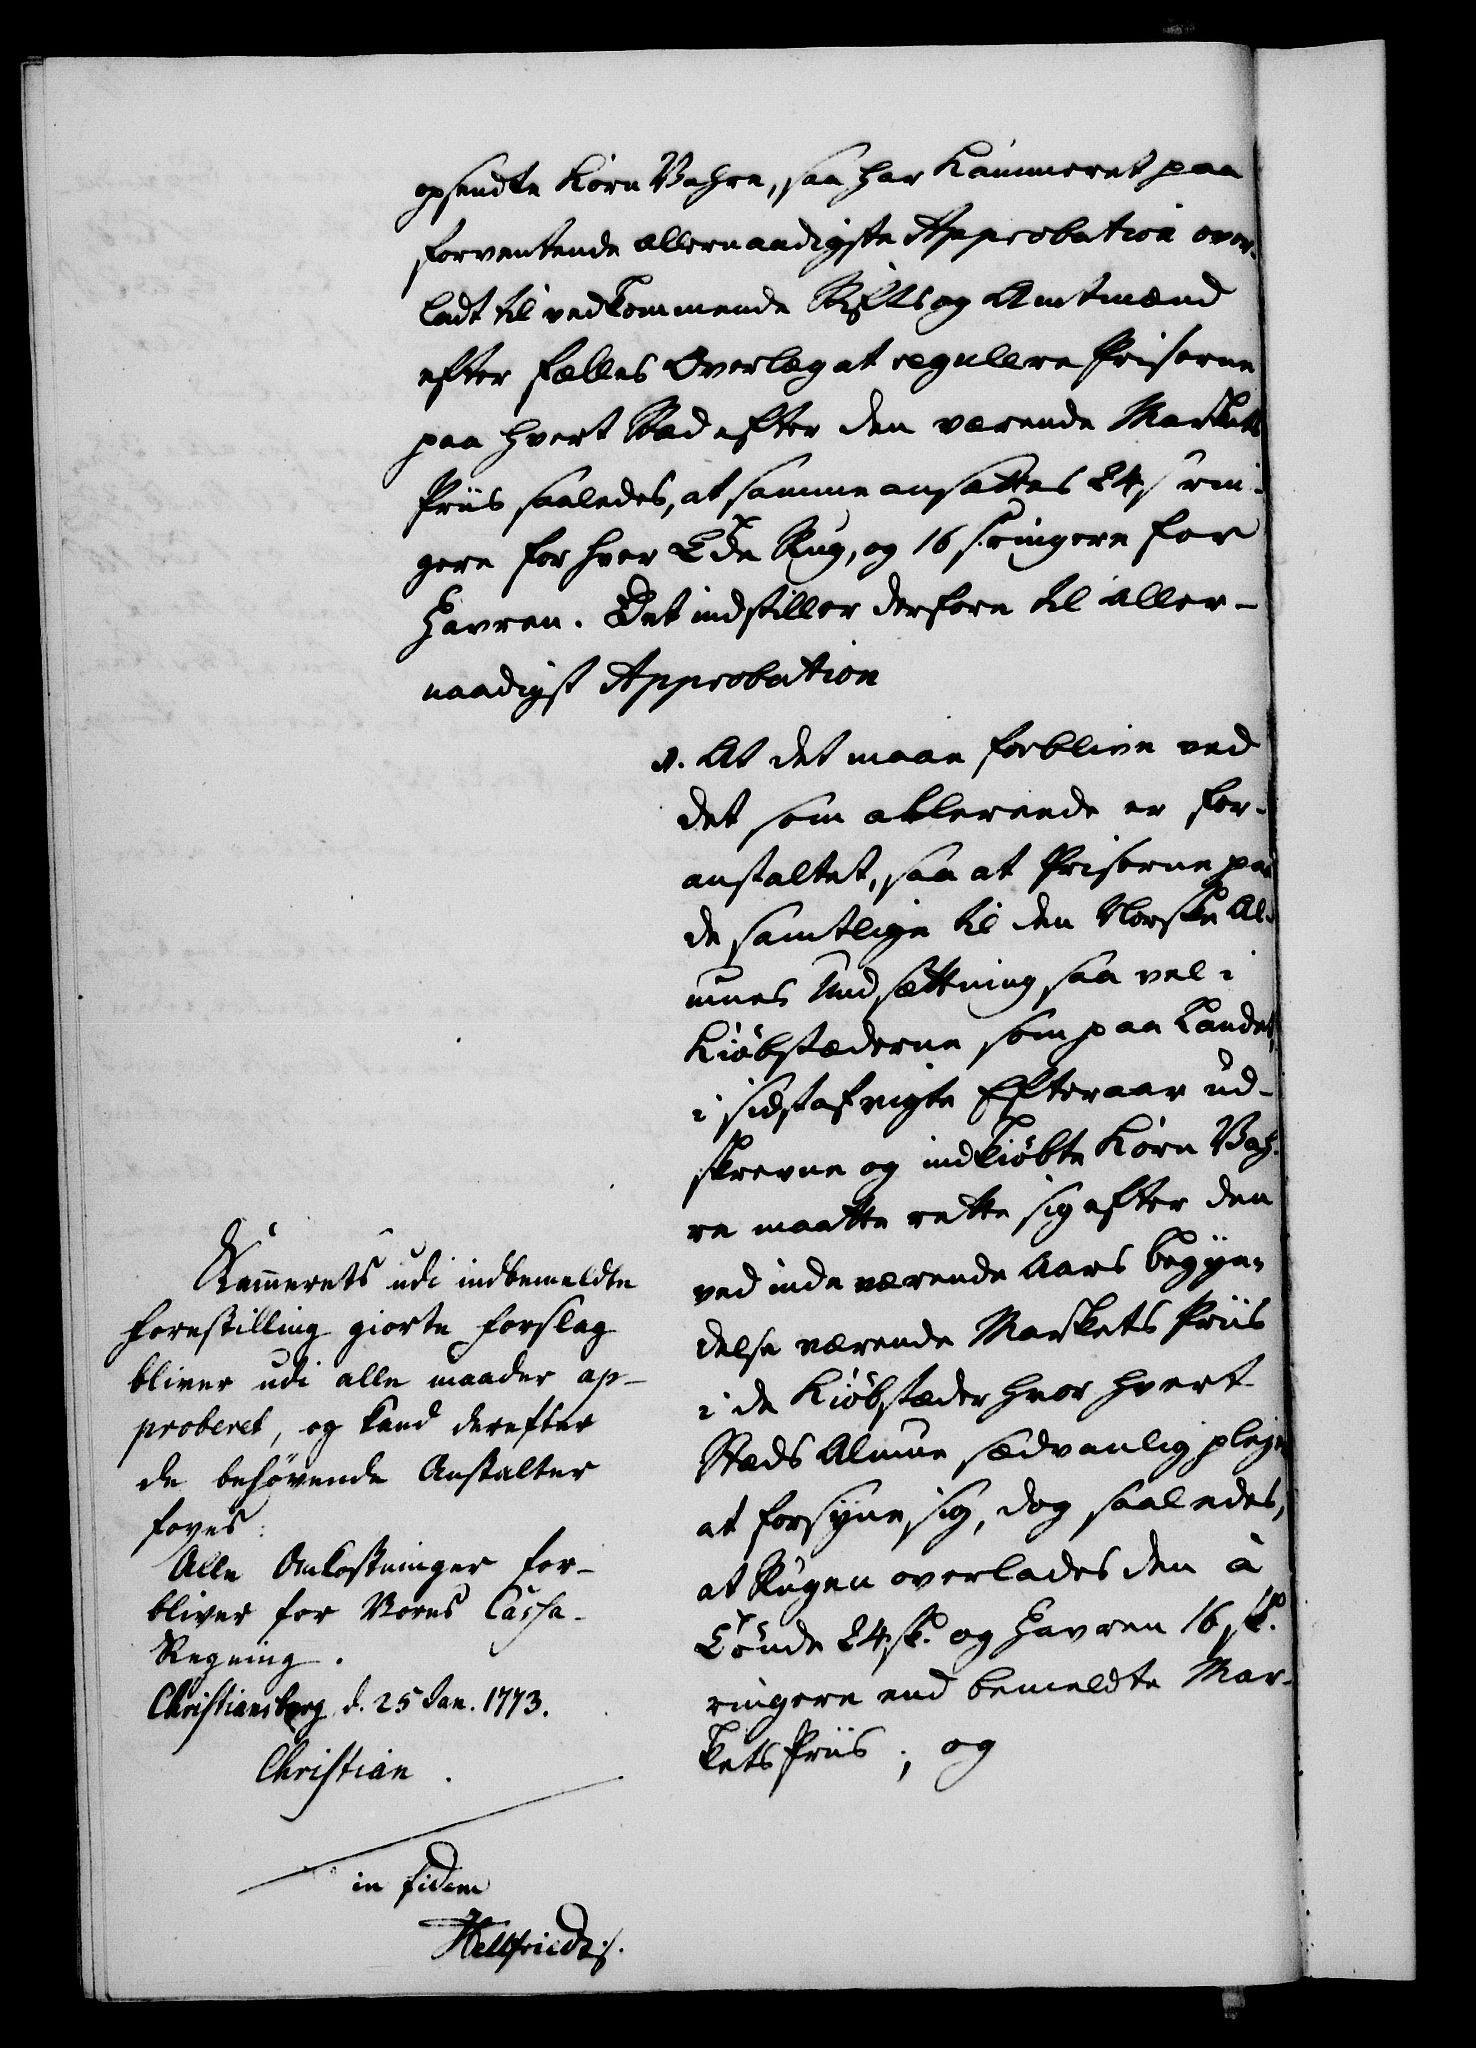 opsendte Korn Vahre, saa har Kammeret paa
forventende allernaadigste Approbation over-
ladt til vedkommende Stifts og Amtmænd
efter fælles Overlæg at regulere Priserne
paa hvert Stæd efter den værende Markets
Priis saaledes, at samme ansættes 24 s rin-
gere for hver Tde Rug, og 16 s. ringere for
Havren. Det indstiller derfore til aller-
naadigst Approbation
1. At det maae forblive ved
det som allereede er for-
anstaltet, saa at Priserne paa
de samtlige til den Norske Al-
mues Undsættning saa vel i
Kiöbstæderne som paa Landet,
i sidstafvigte Efteraar ud-
skrevne og indkiöbte Korn Vah-
re maatte rette sig efter den
ved inde værende Aars Begyn-
delse værende Markets Priis
i de Kiöbstæder hvor hvert
Stæds Almue sædvanlig pleje
at forsyne sig, dog saaledes,
at Rugen overlades dem à
Tönde 24 sk. og Havren 16 sk.
ringere end bemeldte Mar-
kets Priis; og
Kammerets udi indbemeldte
Forestilling giorte Forslag
bliver udi alle maader ap-
proberet, og kand derefter
de behøvende Anstalter
foyes:
Alle Omkostninger for-
bliver for Vores Cassa-
Regning.
Christiansborg d. 25 Jan. 1773.
Christian.
in fidem
Hellfriedt.